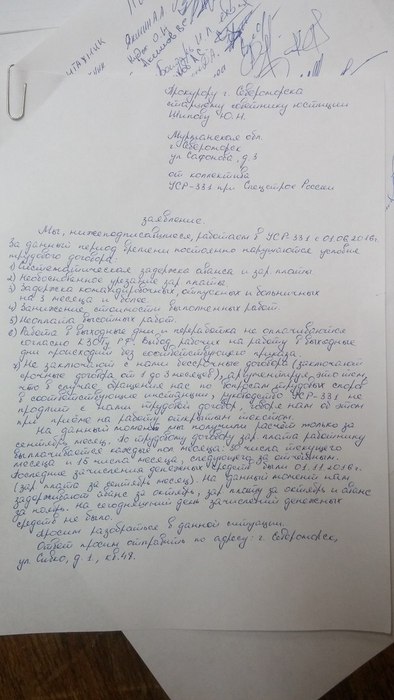 Прокурору г. Североморска
старшему советнику юстиции
Шипову Ю.Н.
Мурманская обл.
г. Североморск
ул. Сафонова, д. 3
от коллектива
УСР-331 при Спецстрое России
заявление.
Мы, нижеподписавшиеся, работаем в УСР-331 с 01.06.2016г.
За данный период времени постоянно нарушаются условия
трудового договора:
1) Систематическая задержка аванса и зар. платы
2) Необоснованное урезание зар. платы
3) Задержка командировочных, отпускных и больничных
на 3 месяца и более.
4) Занижение стоимости выполненных работ
5) Неоплата высотных работ
6) Работа в выходные дни и переработка не оплачиваются
согласно КЗОТу РФ. Вывод рабочих на работу в выходные
дни происходит без соответствующего приказа.
7) Не заключают с нами бессрочные договора (заключают
срочные договора от 1 до 3 месяцев), аргументируя это тем,
что в случае обращения нас по вопросам трудовых споров
в соответствующие инстанции, руководство УСР-331 не
продлит с нами трудовой договор, говоря нам об этом
при приёме на работу открытым текстом.
На данный момент мы получили расчёт только за
сентябрь месяц. По трудовому договору зар. плата работнику
выплачивается каждые пол месяца: 30 числа текущего
месяца и 15 числа месяца, следующего за отчётным.
Последние зачисления денежных средств были 01.11.2016г.
(зар. плата за сентябрь месяц). На данный момент нам
задерживают аванс за октябрь, зар. плату за октябрь и аванс
за ноябрь. На сегодняшний день зачислений денежных
средств не было.
Просим разобраться в данной ситуации.
Ответ просим отправить по адресу: г. Североморск,
ул. Сивко, д. 1, кв. 48.